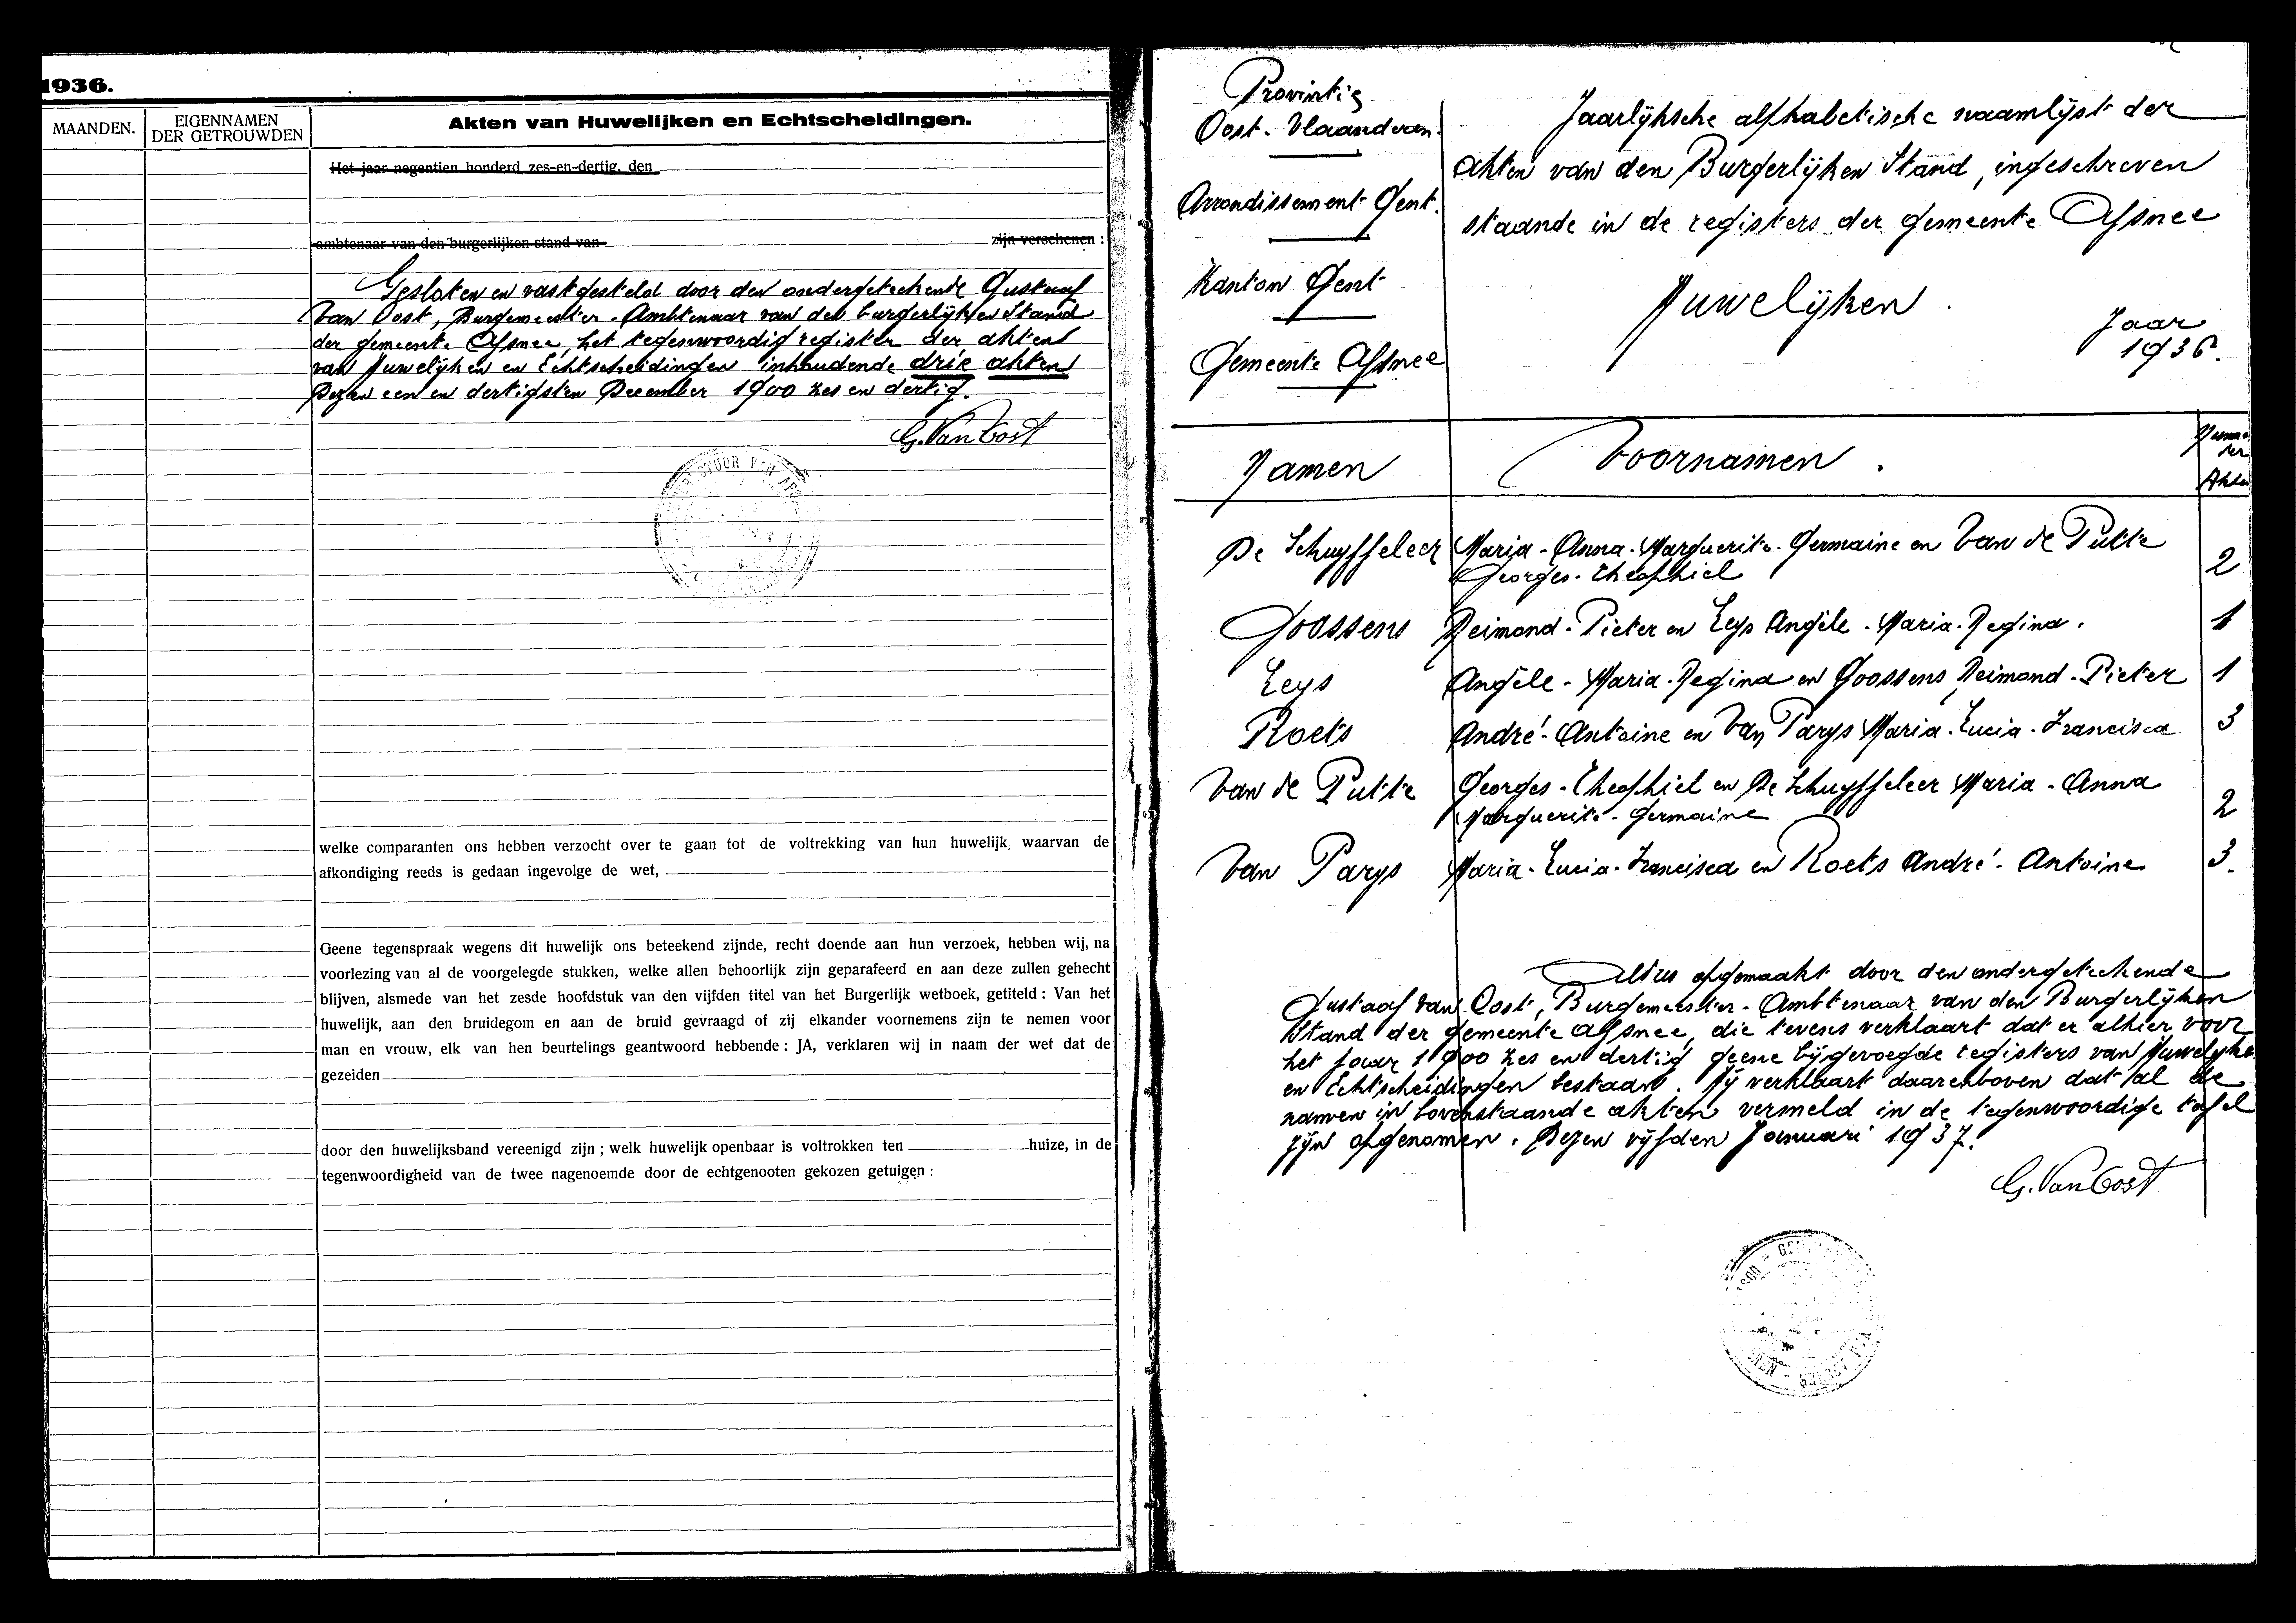 1936.
MAANDEN.
EIGENNAMEN
DER GETROUWDEN
Akten van Huwelijken en Echtscheidingen.
Het jaar negentien honderd zes-en-dertig, den
ambtenaar van den burgerlijken stand van zijn verschenen :
Gesloten en vastgesteld door den ondergeteekende Gustaaf
Van Oost, Burgemeester - Ambtenaar van den burgerlijken Stand
der gemeente Afsnee, het tegenwoordig register der akten
van Huwelijken en Echtscheidingen inhoudende drie akten
Dezen een en dertigsten December 1900 zes en dertig.
G. Van Oost
welke comparanten ons hebben verzocht over te gaan tot de voltrekking van hun huwelijk, waarvan de
afkondiging reeds is gedaan ingevolge de wet,
Geene tegenspraak wegens dit huwelijk ons beteekend zijnde, recht doende aan hun verzoek, hebben wij, na
voorlezing van al de voorgelegde stukken, welke allen behoorlijk zijn geparafeerd en aan deze zullen gehecht
blijven, alsmede van het zesde hoofdstuk van den vijfden titel van het Burgerlijk wetboek, getiteld : Van het
huwelijk, aan den bruidegom en aan de bruid gevraagd of zij elkander voornemens zijn te nemen voor
man en vrouw, elk van hen beurtelings geantwoord hebbende : JA, verklaren wij in naam der wet dat de
gezeiden
door den huwelijksband vereenigd zijn ; welk huwelijk openbaar is voltrokken ten huize, in de
tegenwoordigheid van de twee nagenoemde door de echtgenooten gekozen getuigen :
Provintie
Oost-Vlaanderen.
Arrondissement Gent.
Kanton Gent
Gemeente Afsnee
Jaarlijksche alphabetische naamlijst der
akten van den Burgerlijken Stand, ingeschreven
staande in de registers der gemeente Afsnee
Huwelijken.
Jaar
1936.
Namen
Voornamen.
Akten
De Schuyffeleer Maria-Anna-Marguerite-Germaine en Van de Putte
Georges-Theophiel 2
Goossens Reimond-Pieter en Leys Angèle-Maria-Regina. 1
Leys Angèle-Maria-Regina en Goossens Reimond-Pieter 1
Roets André-Antoine en Van Parys Maria-Lucia-Francisca 3
Van de Putte Georges-Theophiel en De Schuyffeleer Maria-Anna
Marguerite-Germaine 2
Van Parys Maria-Lucia-Francisca en Roets André-Antoine 3.
Aldus opgemaakt door den ondergeteekende
Gustaaf Van Oost, Burgemeester-Ambtenaar van den Burgerlijken
Stand der gemeente Afsnee, die tevens verklaart dat er alhier voor
het jaar 1900 zes en dertig geene bijgevoegde registers van Huwelijke
en Echtscheidingen bestaan. Hij verklaart daarenboven dat al de
namen in bovenstaande akten vermeld in de tegenwoordige tafel
zijn opgenomen. Dezen vijfden Januari 1937.
G. Van Oost